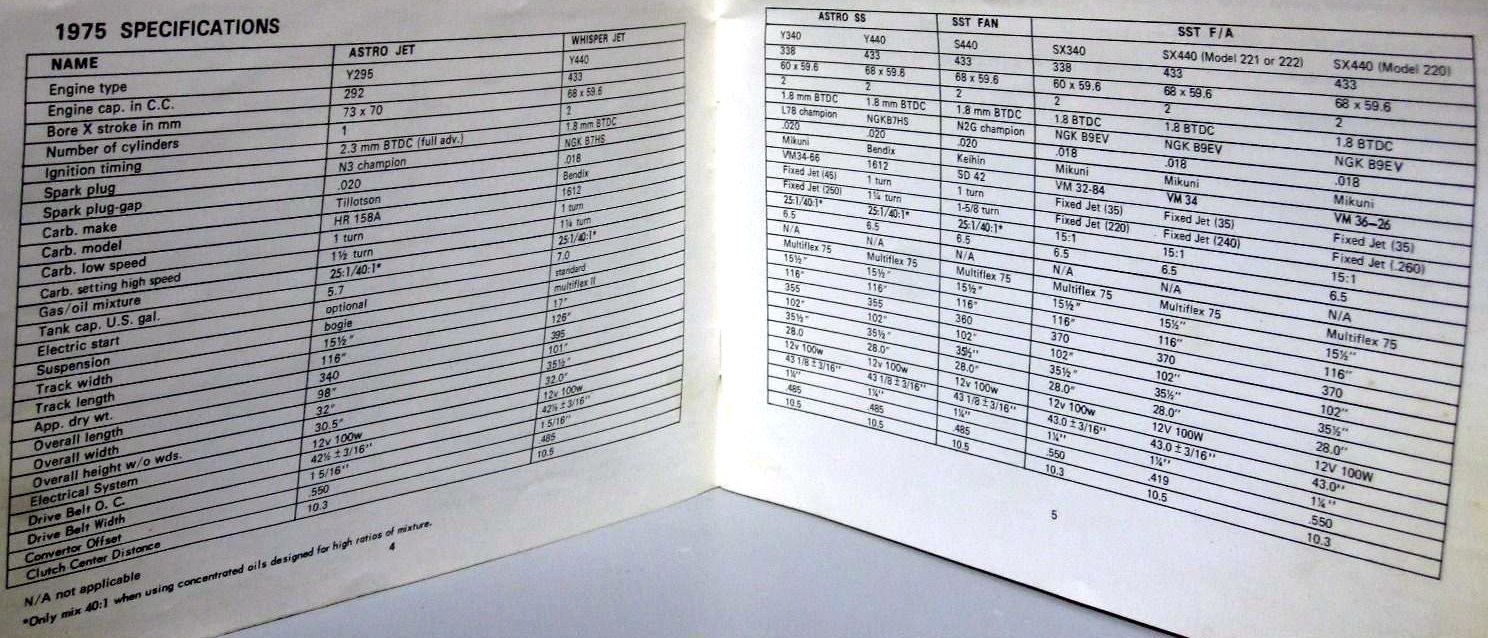 1975 SPECIFICATIONS
NAME ASTRO JET WHISPER JET
Engine type Y295 Y440
Engine cap. in C.C. 292 433
Bore X stroke in mm 73 x 70 68 x 59.6
Number of cylinders 1 2
Ignition timing 2.3 mm BTDC (full adv.) 1.8 mm BTDC
Spark plug N3 champion NGK B7HS
Spark plug-gap .020 .018
Carb. make Tillotson Bendix
Carb. model HR 158A 1612
Carb. low speed 1 turn 1 turn
Carb. setting high speed 1½ turn 1¼ turn
Gas/oil mixture 25:1/40:1* 25:1/40:1*
Tank cap. U.S. gal. 5.7 7.0
Electric start optional standard
Suspension bogie multiflex II
Track width 15½" 17"
Track length 116" 126"
App. dry wt. 340 395
Overall length 98" 101"
Overall width 32" 35½"
Overall height w/o wds. 30.5" 32.0"
Electrical System 12v 100w 12v 100w
Drive Belt O. C. 42½ ± 3/16" 42½ ± 3/16"
Drive Belt Width 1 5/16" 1 5/16"
Convertor Offset .550 .485
Clutch Center Distance 10.3 10.5
N/A not applicable
*Only mix 40:1 when using concentrated oils designed for high ratios of mixture.
4
ASTRO SS SST FAN SST F/A
Y340 Y440 S440 SX340 SX440 (Model 221 or 222) SX440 (Model 220)
338 433 433 338 433 433
60 x 59.6 68 x 59.6 68 x 59.6 60 x 59.6 68 x 59.6 68 x 59.6
2 2 2 2 2 2
1.8 mm BTDC 1.8 mm BTDC 1.8 mm BTDC 1.8 BTDC 1.8 BTDC 1.8 BTDC
L78 champion NGKB7HS N2G champion NGK B9EV NGK B9EV NGK B9EV
.020 .020 .020 .018 .018 .018
Mikuni Bendix Keihin Mikuni Mikuni Mikuni
VM34-66 1612 SD 42 VM 32-84 VM 34 VM 36-26
Fixed Jet (45) 1 turn 1 turn Fixed Jet (35) Fixed Jet (35) Fixed Jet (35)
Fixed Jet (250) 1¼ turn 1-5/8 turn Fixed Jet (220) Fixed Jet (240) Fixed Jet (.260)
25:1/40:1* 25:1/40:1* 25:1/40:1* 15:1 15:1 15:1
6.5 6.5 6.5 6.5 6.5 6.5
N/A N/A N/A N/A N/A N/A
Multiflex 75 Multiflex 75 Multiflex 75 Multiflex 75 Multiflex 75 Multiflex 75
15½" 15½" 15½" 15½" 15½" 15½"
116" 116" 116" 116" 116" 116"
355 355 360 370 370 370
102" 102" 102" 102" 102" 102"
35½" 35½" 35½" 35½" 35½" 35½"
28.0 28.0" 28.0" 28.0" 28.0" 28.0"
12v 100w 12v 100w 12v 100w 12v 100w 12V 100W 12V 100W
43 1/8 ± 3/16" 43 1/8 ± 3/16" 43 1/8 ± 3/16" 43.0 ± 3/16" 43.0 ± 3/16" 43.0"
1¼" 1¼" 1¼" 1¼" 1¼" 1¼"
.485 .485 .485 .550 .419 .550
10.5 10.5 10.5 10.3 10.5 10.3
5